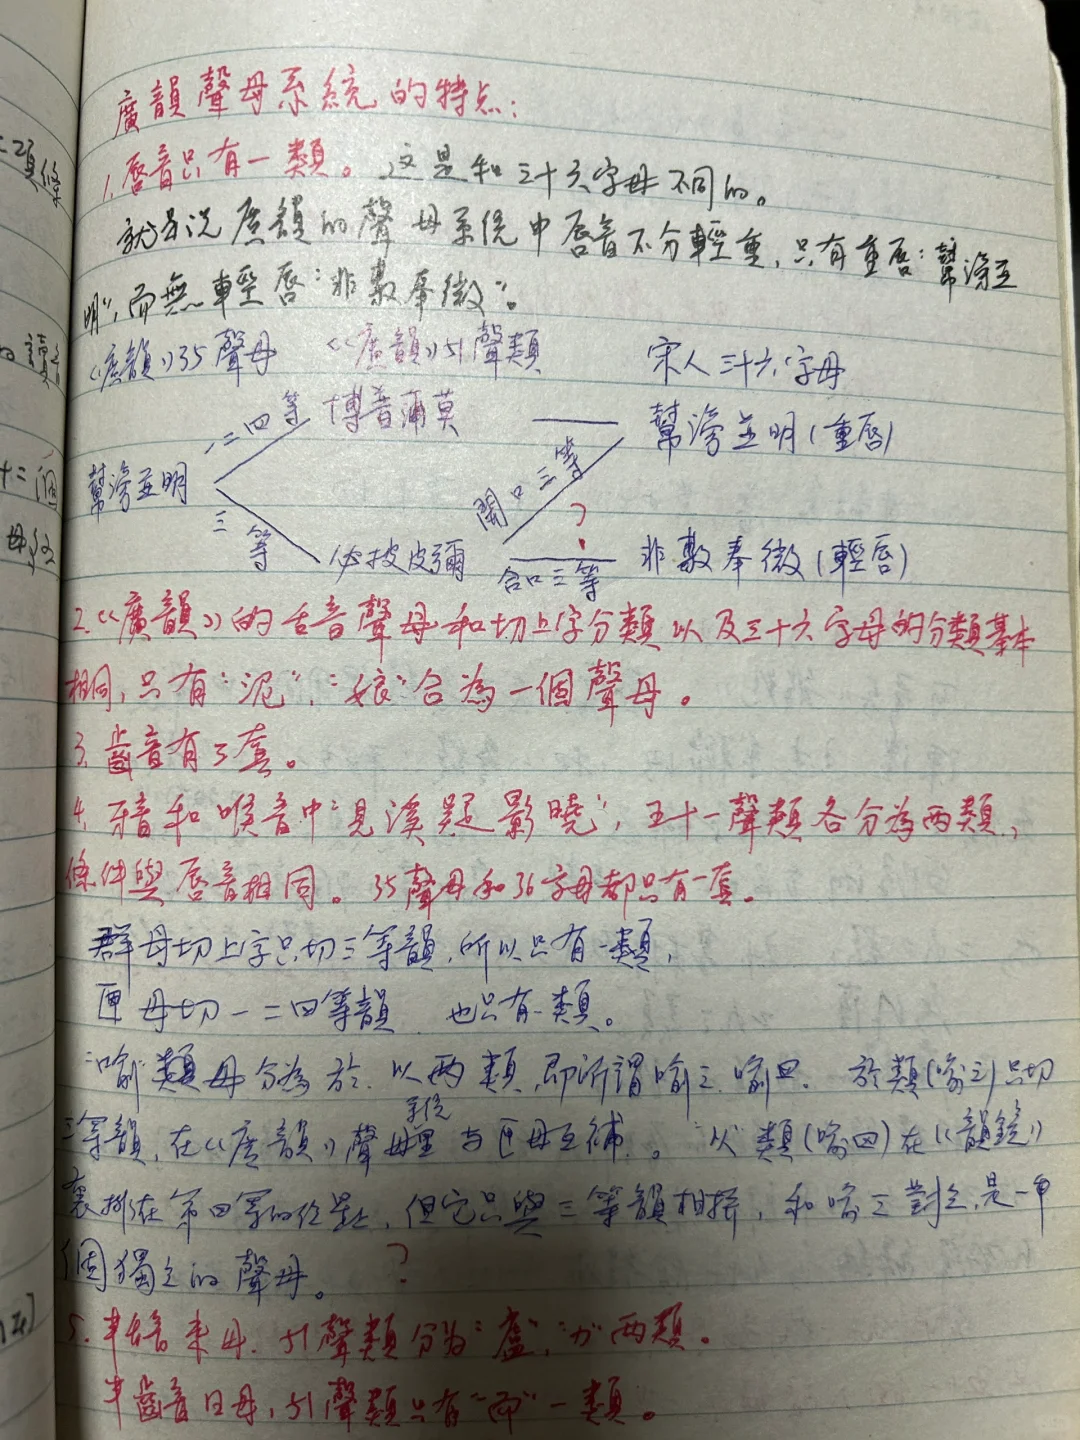 廣韻聲母系統的特点：
1.唇音只有一類。这是和三十六字母不同的。
就是说廣韻的聲母系统中唇音不分輕重，只有重唇“幫滂並
明”，而無輕唇“非敷奉微”。
《廣韻》35聲母 《廣韻》51聲類 宋人三十六字母
一二四等 博普蒲莫 幫滂並明(重唇)
幫滂並明 開口三等
三等 必披皮彌 合口三等 ? 非敷奉微(輕唇)
2.《廣韻》的舌音聲母和切上字分類以及三十六字母的分類基本
相同，只有“泥”、“娘”合為一個聲母。
3.齒音有3套。
4.牙音和喉音中“見溪疑影曉”，五十一聲類各分為兩類，
條件與唇音相同。35聲母和36字母都只有一套。
群母切上字只切三等韻，所以只有一類，
匣母切一二四等韻 也只有一類。
“喻”類母分為於、以兩類，即所謂喻三、喻四. 於類(喻三)只切
三等韻，在《廣韻》聲母系统里与匣母互補。“以”類(喻四)在《韻鏡》
裏排在第四等的位置上，但它只與三等韻相拼，和喻三對立，是一
個獨立的聲母。 ?
5.半舌音來母，51聲類分为“盧”、“力”两類。
半齒音日母，51聲類只有“而”一類。
二項
讀
十二個
母